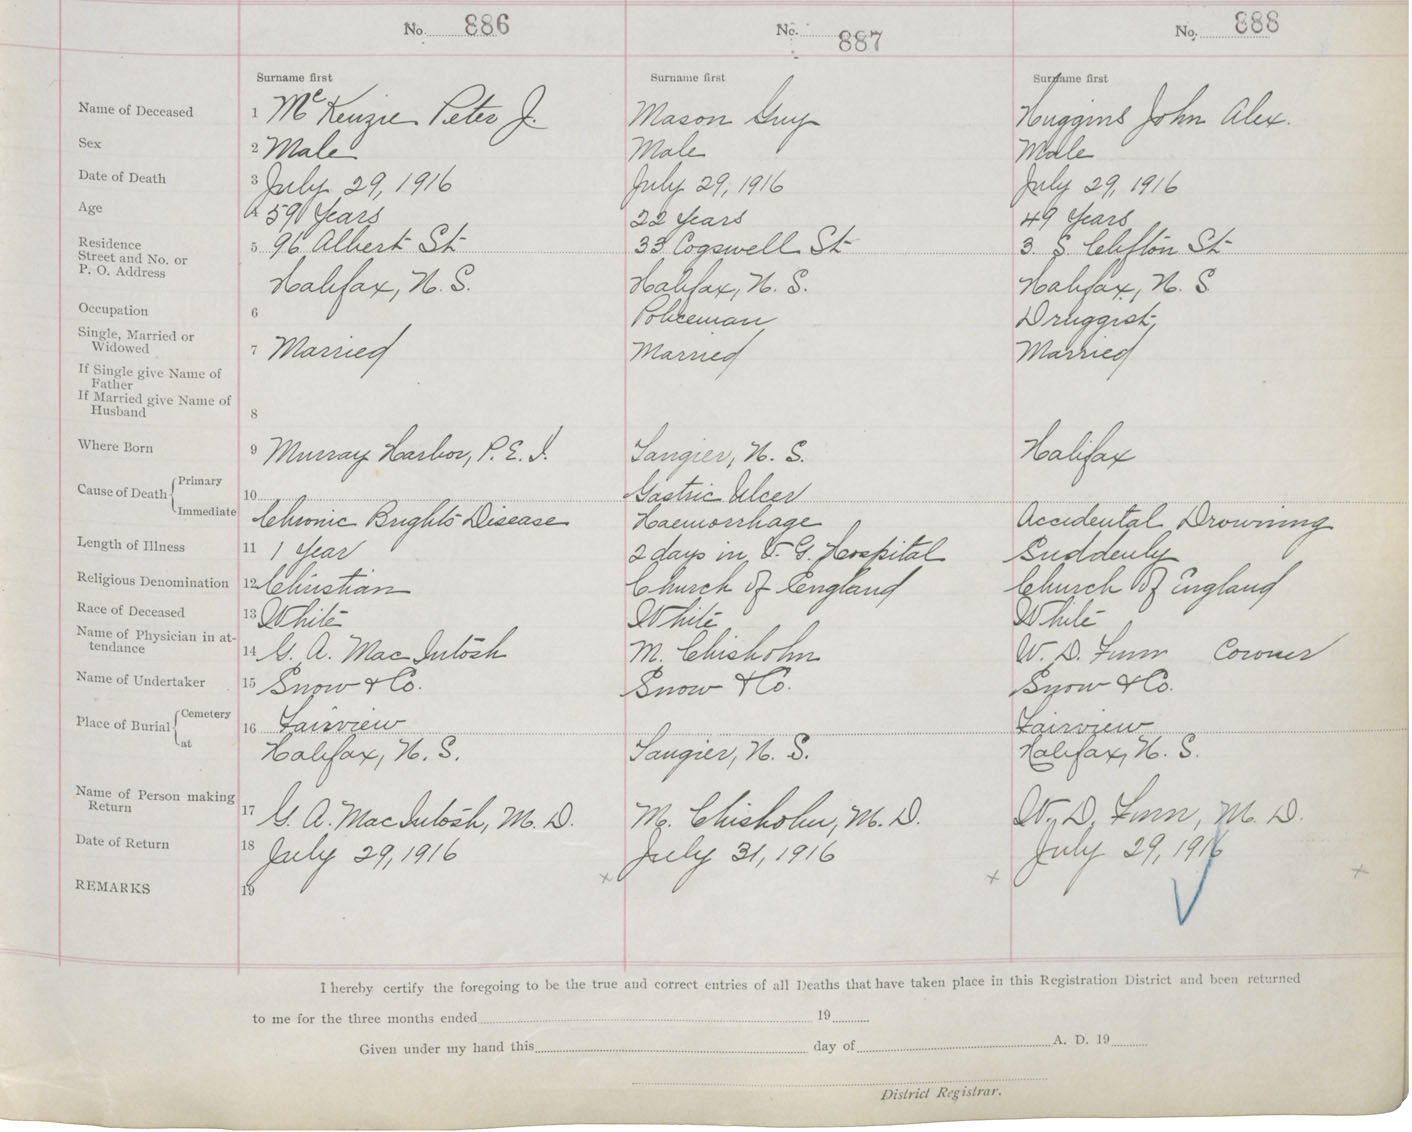 No. 886 No. 887 No. 888
Surname first Surname first Surname first
Name of Deceased 1 McKenzie Peter J. Mason Guy Huggins John Alex.
Sex 2 Male Male Male
Date of Death 3 July 29, 1916 July 29, 1916 July 29, 1916
Age 4 59 Years 22 Years 49 Years
Residence 5 96 Albert St 33 Cogswell St 3 S. Clifton St
Street and No. or
P. O. Address Halifax, N. S. Halifax, N. S. Halifax, N. S
Occupation 6 Policeman Druggist
Single, Married or
Widowed 7 Married Married Married
If Single give Name of
Father
If Married give Name of
Husband 8
Where Born 9 Murray Harbor, P. E. I. Tangier, N. S. Halifax
Cause of Death Primary 10 Gastric Ulcer
Immediate Chronic Brights Disease Haemorrhage Accidental Drowning
Length of Illness 11 1 Year 2 days in V. G. Hospital Suddenly
Religious Denomination 12 Christian Church of England Church of England
Race of Deceased 13 White White White
Name of Physician in at-
tendance 14 G. A. MacIntosh M. Chisholm W. D. Finn Coroner
Name of Undertaker 15 Snow & Co. Snow & Co. Snow & Co.
Place of Burial Cemetery 16 Fairview Fairview
at Halifax, N. S. Tangier, N. S. Halifax, N. S.
Name of Person making
Return 17 G. A. MacIntosh, M. D. M. Chisholm, M. D. W. D. Finn, M. D.
Date of Return 18 July 29, 1916 July 31, 1916 July 29, 1916
REMARKS 19
I hereby certify the foregoing to be the true and correct entries of all Deaths that have taken place in this Registration District and been returned
to me for the three months ended 19
Given under my hand this day of A. D. 19
District Registrar.